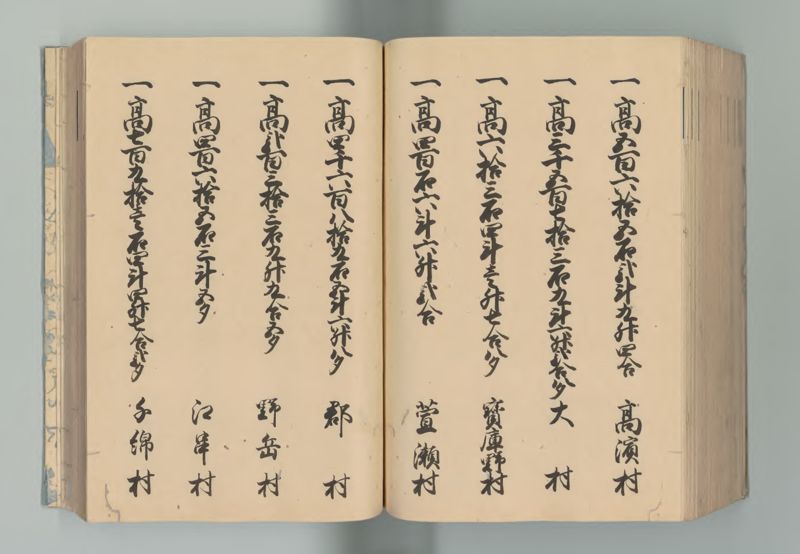 一高五百六拾五石弐斗九升四合 高濱村
一高三千五百七拾三石九斗一升弐合八夕 大村
一高六拾三石四斗壱升七合八夕 寳庫野村
一高四百石六斗六升弐合 萱瀬村
一高四千六百八拾九石五斗六升八夕 郡村
一高弐百三拾三石九升九合五夕 野岳村
一高四百六拾五石三斗五夕 江串村
一高七百九拾壱石四斗四升七合弐夕 千綿村